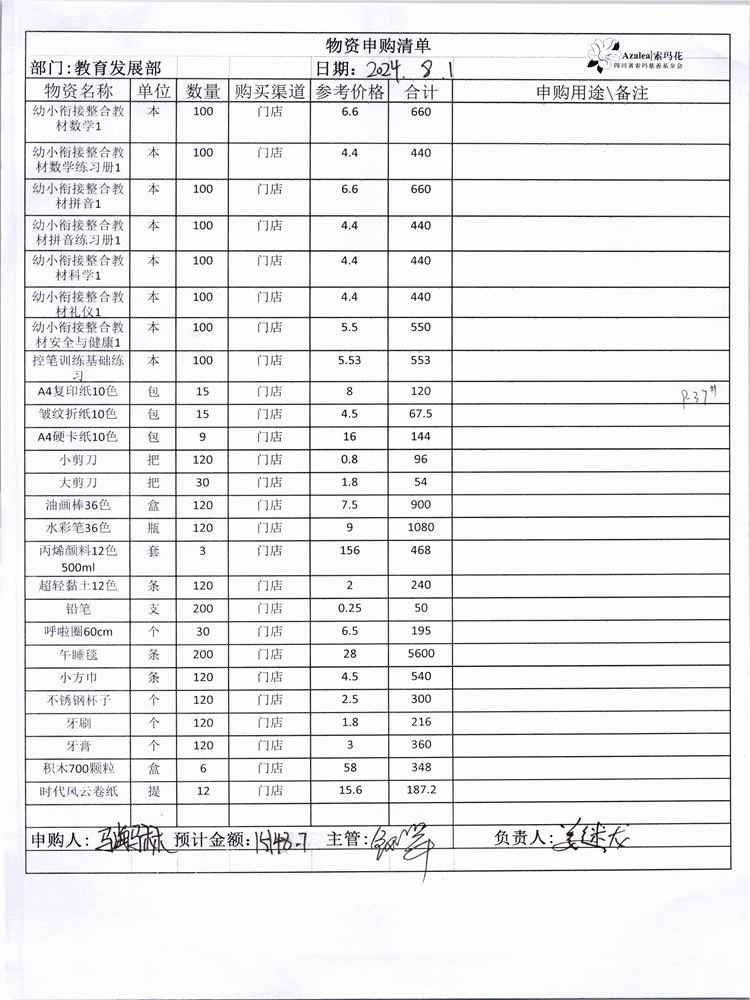 物资申购清单
Azalea|索玛花
四川省索玛慈善基金会
部门:教育发展部 日期: 2024.8.1
物资名称 单位 数量 购买渠道 参考价格 合计 申购用途\备注
幼小衔接整合教 本 100 门店 6.6 660
材数学1
幼小衔接整合教 本 100 门店 4.4 440
材数学练习册1
幼小衔接整合教 本 100 门店 6.6 660
材拼音1
幼小衔接整合教 本 100 门店 4.4 440
材拼音练习册1
幼小衔接整合教 本 100 门店 4.4 440
材科学1
幼小衔接整合教 本 100 门店 4.4 440
材礼仪1
幼小衔接整合教 本 100 门店 5.5 550
材安全与健康1
控笔训练基础练 本 100 门店 5.53 553
习
A4复印纸10色 包 15 门店 8 120
皱纹折纸10色 包 15 门店 4.5 67.5
A4硬卡纸10色 包 9 门店 16 144
小剪刀 把 120 门店 0.8 96
大剪刀 把 30 门店 1.8 54
油画棒36色 盒 120 门店 7.5 900
水彩笔36色 瓶 120 门店 9 1080
丙烯颜料12色 套 3 门店 156 468
500ml
超轻黏土12色 条 120 门店 2 240
铅笔 支 200 门店 0.25 50
呼啦圈60cm 个 30 门店 6.5 195
午睡毯 条 200 门店 28 5600
小方巾 条 120 门店 4.5 540
不锈钢杯子 个 120 门店 2.5 300
牙刷 个 120 门店 1.8 216
牙膏 个 120 门店 3 360
积木700颗粒 盒 6 门店 58 348
时代风云卷纸 提 12 门店 15.6 187.2
申购人: 预计金额: 15148.7 主管: 负责人: